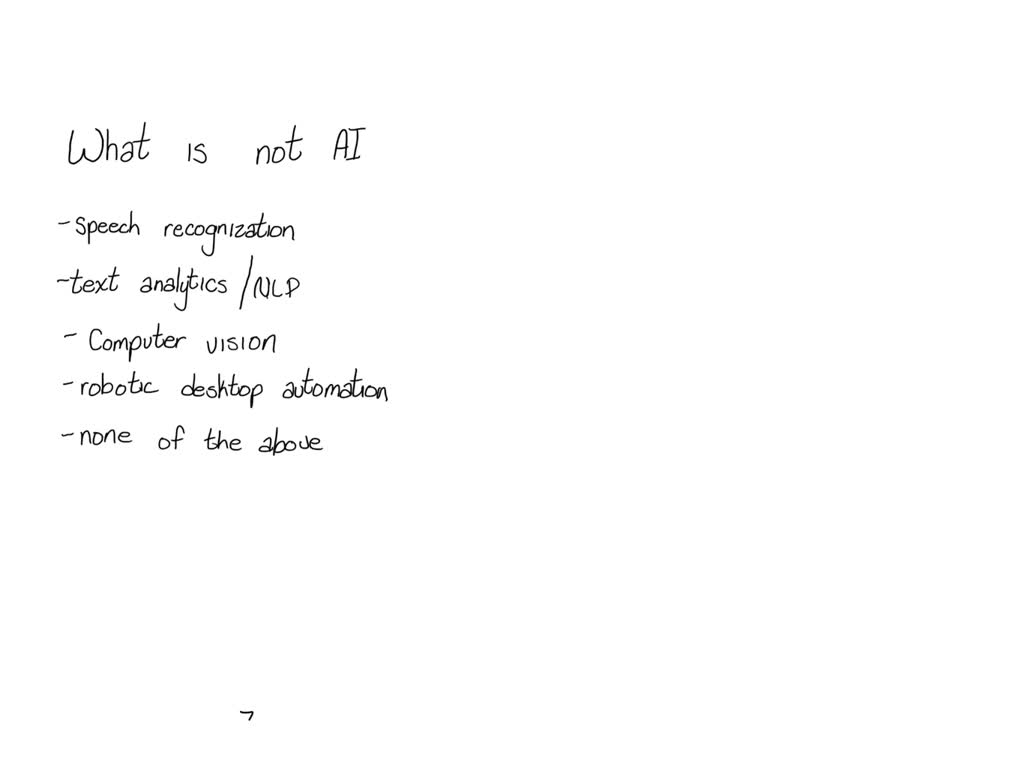 What is not AI
- speech recognization
- text analytics / NLP
- Computer vision
- robotic desktop automation
- none of the above